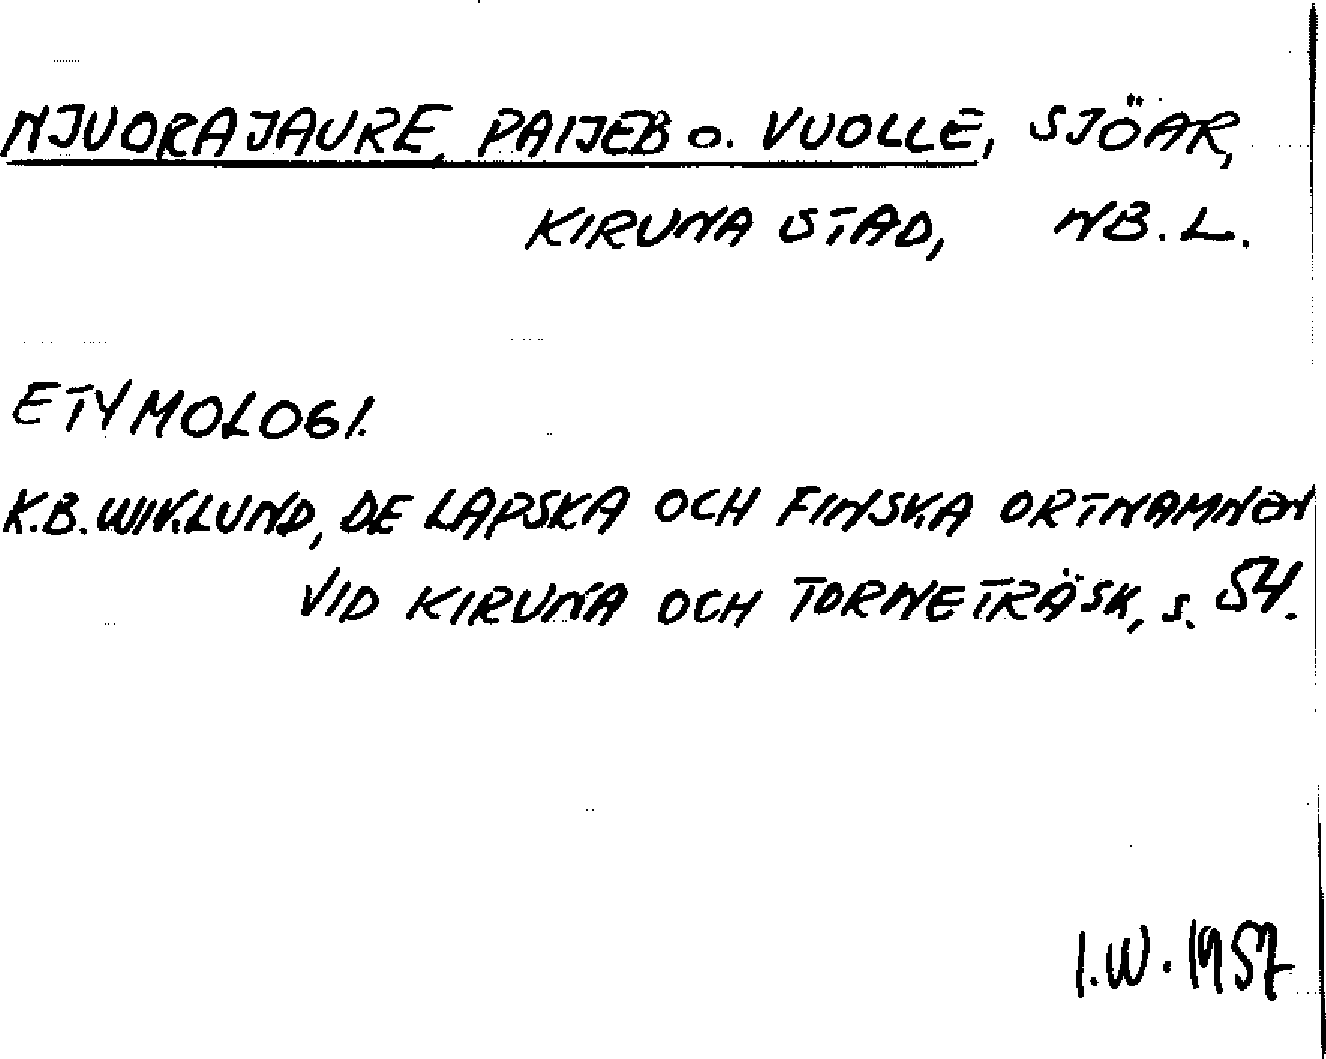 NJUORAJAURE, PAIJEB o. VUOLLE, SJÖAR,
KIRUNA STAD, NB.L.
ETYMOLOGI.
K.B. WIKLUND, DE LAPSKA OCH FINSKA ORTNAMNEN
VID KIRUNA OCH TORNETRÄSK, s. 54.
I.W. 1957